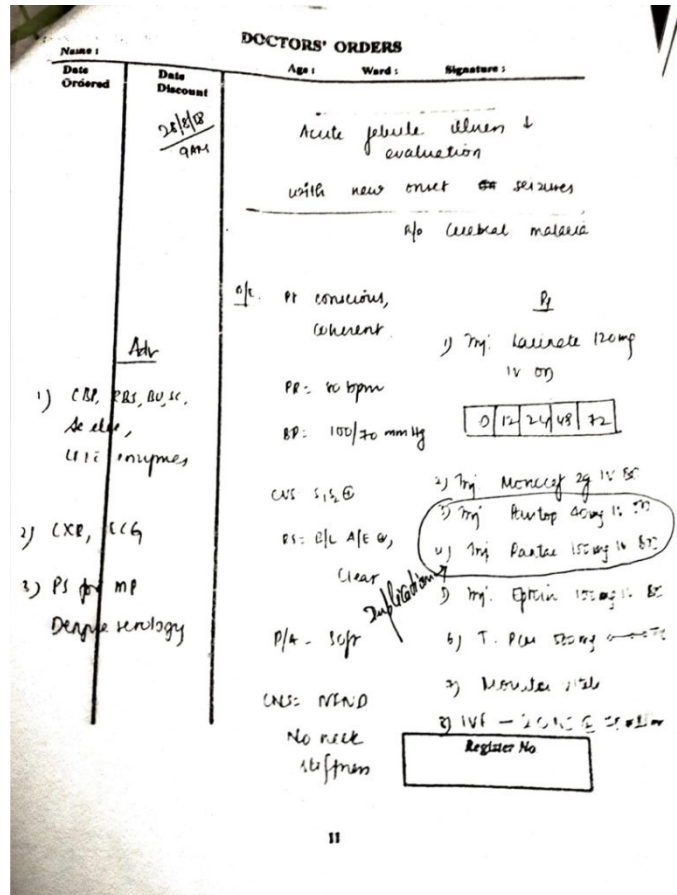 DOCTORS' ORDERS
Name :
Date Ordered
Date Discount
Age :
Ward :
Signature :
28/8/18
9AM
Acute febrile illness ↓
evaluation
with new onset seizures
R/o Cerebral malaria
O/E. Pt conscious,
Coherent.
PR = 80 bpm
BP = 100/70 mm Hg
CVS S1S2 ⊕
RS = B/L A/E ⊕,
Clear
P/A - Soft
CNS = NFND
No neck
stiffness
Adv
1) CBP, RBS, BU, SC,
Se ele,
enzymes
2) CXR, ECG
3) PS for MP
Dengue serology
Rx
1) Inj. Larinate 120mg
IV
0 12 24 48 72
2) Inj Monocef 2g IV BD
3) Inj 40mg IV
4) Inj Rantac 150mg IV BD
Duplication
5) Inj. Eptoin IV
6) T. PCM
7) Monitor vitals
8) IVF -
Register No
11